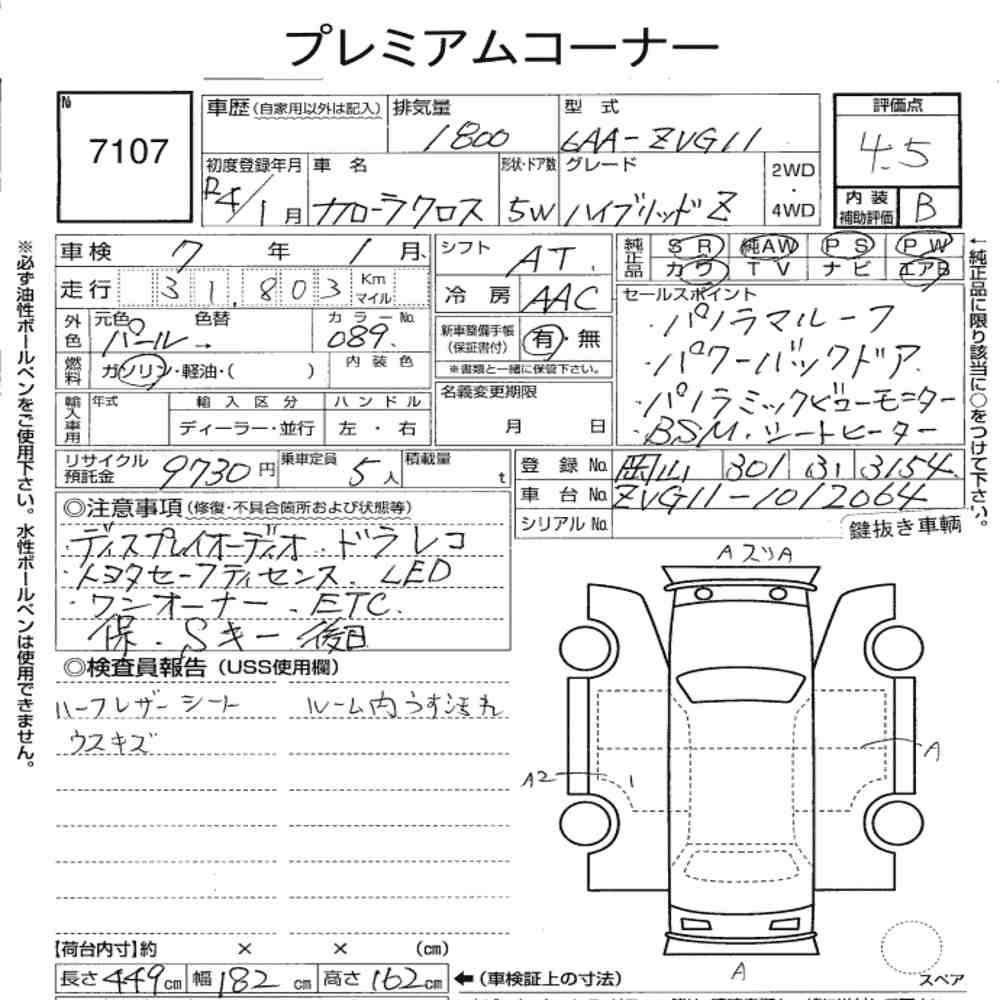 プレミアムコーナー
№
7107
車歴(自家用以外は記入)
排気量
1800
型式
6AA-ZVG11
評価点
4.5
初度登録年月
R4/1月
車名
カローラクロス
形状・ドア数
5W
グレード
ハイブリッドZ
2WD
・
4WD
内装
補助評価
B
車検 7年 1月
シフト
AT.
純正品
SR 純AW PS PW
カワ TV ナビ エアB
走行 31,803 Km マイル
冷房 AAC
セールスポイント
・パノラマルーフ
・パワーバックドア
・パノラミックビューモニター
・BSM.シートヒーター
外色
元色
パール→
色替
カラーNo.
089.
新車整備手帳
(保証書付)
有・無
※書類と一緒に保管下さい。
燃料
ガソリン・軽油・( )
内装色
名義変更期限
月 日
輸入車用
年式
輸入区分
ディーラー・並行
ハンドル
左・右
リサイクル預託金 9730円
乗車定員 5人
積載量 t
登録No. 岡山 301 る 3154
車台No. ZVG11-1012064
シリアルNo.
鍵抜き車輌
◎注意事項(修復・不具合箇所および状態等)
・ディスプレイオーディオ.ドラレコ
・トヨタセーフティセンス. LED
・ワンオーナー.ETC.
保.Sキー 後日
◎検査員報告(USS使用欄)
ハーフレザーシート
ウスキズ
ルーム内うす汚れ
AスリA
A
A2
A
スペア
【荷台内寸】約 × × (cm)
長さ 449cm 幅 182cm 高さ 162cm ←(車検証上の寸法)
※必ず油性ボールペンをご使用下さい。水性ボールペンは使用できません。
←純正品に限り該当に○をつけて下さい。